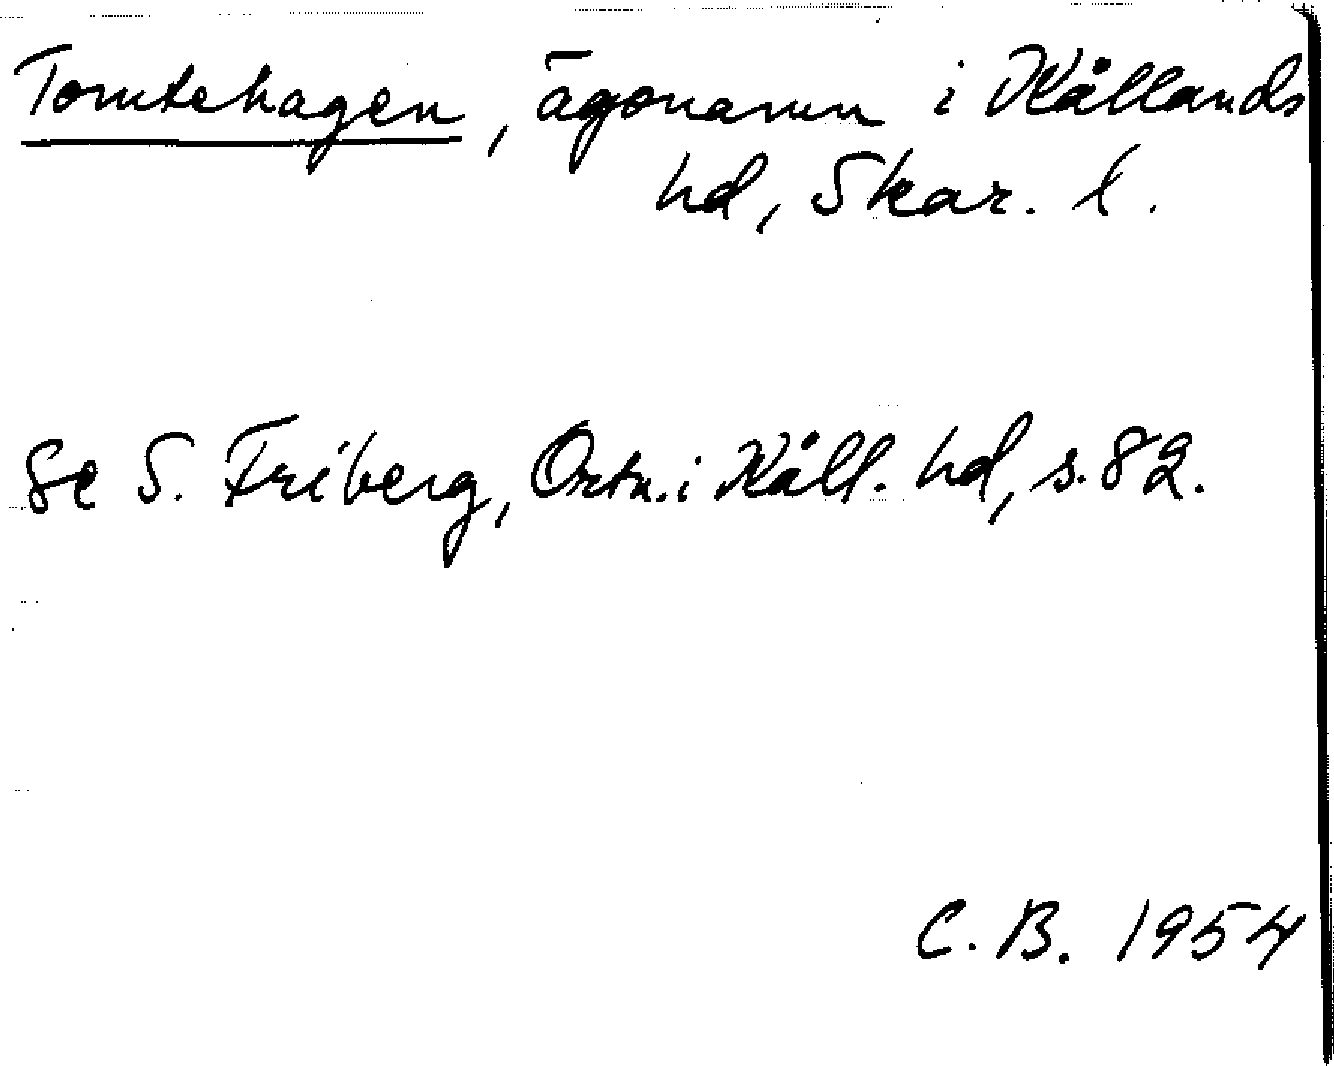 Tomtehagen, ägonamn i Kållands
hd, Skar. l.
Se S. Friberg, Ortn. i Kåll. hd, s. 82.
C. B. 1954